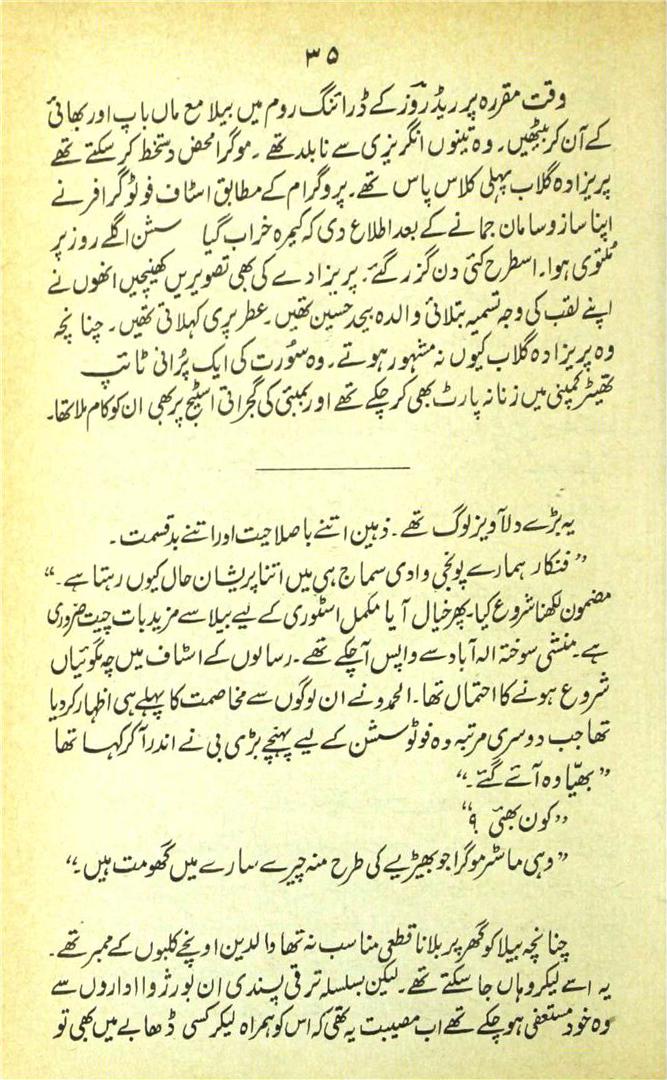 ۳۵
وقت مقررہ پر ریڈ روز کے ڈرائنگ روم میں بیلا مع ماں باپ اور بھائی
کے آن کر بیٹھیں۔ وہ تینوں انگریزی سے نابلد تھے۔ موگرا محض دستخط کر سکتے تھے
پریزادہ گلاب پہلی کلاس پاس تھے۔ پروگرام کے مطابق اسٹاف فوٹو گرافر نے
اپنا ساز و سامان جمانے کے بعد اطلاع دی کہ کیمرہ خراب گیا سشن اگلے روز پر
ملتوی ہوا۔ اسطرح کئی دن گزر گئے۔ پریزادے کی بھی تصویریں کھینچیں انھوں نے
اپنے لقب کی وجہ تسمیہ بتلائی والدہ بیحد حسین تھیں۔ عطر پری کہلاتی تھیں۔ چنانچہ
وہ پریزادہ گلاب کیوں نہ مشہور ہوتے۔ وہ سُورت کی ایک پُرانی ٹائپ
تھیٹر کمپنی میں زنانہ پارٹ بھی کر چکے تھے اور بمبئی کی گجراتی اسٹیج پر بھی ان کو کام ملا تھا۔
یہ بڑے دلآویز لوگ تھے۔ ذہین اتنے باصلاحیت اور اتنے بدقسمت۔
”فنکار ہمارے پونجی وادی سماج ہی میں اتنا پریشان حال کیوں رہتا ہے۔“
مضمون لکھنا شروع کیا۔ پھر خیال آیا مکمل اسٹوری کے لیے بیلا سے مزید بات چیت ضروری
ہے۔ منشی سوختہ الہ آباد سے واپس آ چکے تھے۔ رسالوں کے اسٹاف میں چہ مگوئیاں
شروع ہونے کا احتمال تھا۔ الحمدو نے ان لوگوں سے مخاصمت کا پہلے ہی اظہار کر دیا
تھا جب دوسری مرتبہ وہ فوٹو سشن کے لیے پہنچے بڑی بی نے اندر آ کر کہا تھا
”بھیّا وہ آئے گئے۔“
”کون بھئی ؟“
”وہی ماسٹر موگرا جو بھیڑیے کی طرح منہ چیرے سارے میں گھومت ہیں۔“
چنانچہ بیلا کو گھر پر بلانا قطعی مناسب نہ تھا والدین اونچے کلبوں کے ممبر تھے۔
یہ اسے لیکر وہاں جا سکتے تھے۔ لیکن بسلسلہ ترقی پسندی ان بورژوا اداروں سے
وہ خود مستعفی ہو چکے تھے اب مصیبت یہ تھی کہ اس کو ہمراہ لیکر کسی ڈھابے میں بھی تو